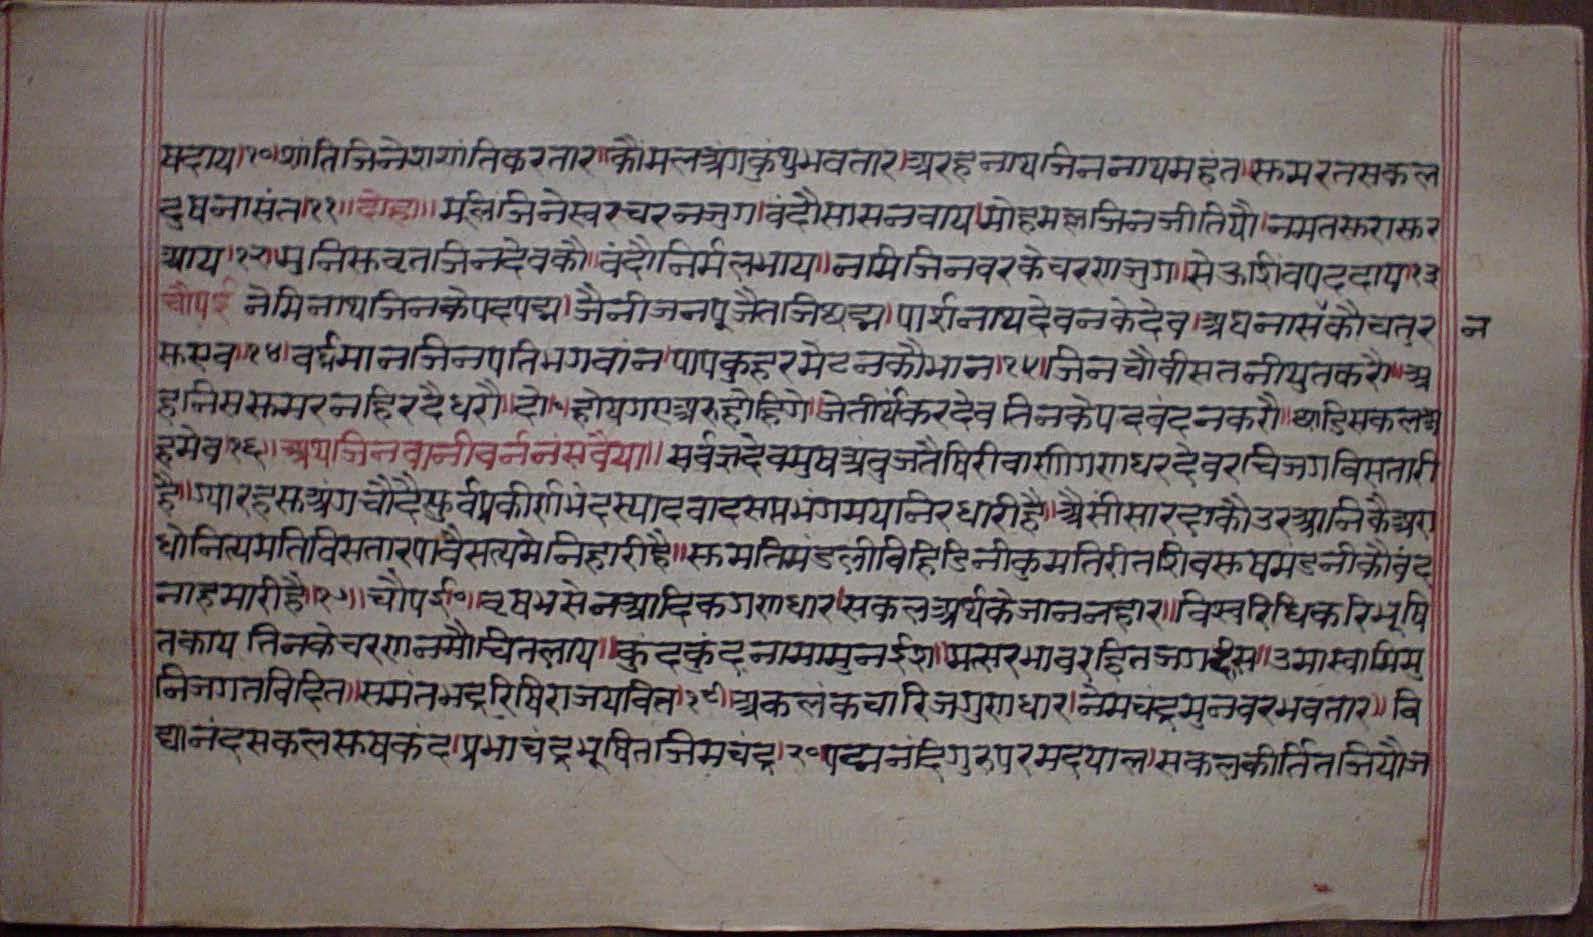 षदाय।१०।शांतिजिनेशशांतिकरतार॥कौमलअंगकुंथुभवतार।अरहनाथजिननाथमहंत।सुमरतसकल
दुषनासंत।११॥दोहा॥मलिजिनेस्वरचरनजुग।वंदौसासनवाय।मोहमल्लजिनजीतियौ।नमतसुरासुर
आय।१२।मुनिसुवृतजिनदेवकौ।वंदौनिर्मलभाय॥नमिजिनवरकेचरणजुग।सेऊशिवपददाय१३
चौपई नेमिनाथजिनकेपदपद्म।जैनीजनपूजैतजिछद्म।पार्शनाथदेवनकेदेव।अघनासँकौचतुर न
सुएव।१४।वर्धमानजिनपतिभगवान।पापकुहरमेटनकौभान।१५।जिनचौवीसतनीथुतकरौ॥अ
हनिससुमरनहिरदैधरौ।दो॰होयगएअरुहोहिगे।जेतीर्थकरदेव तिनकेपदवंदनकरौ॥छाडिसकलअ
हमेव१६॥अथजिनवानीवर्ननंसवैया॥सर्वज्ञदेवमुषअंवुजतैषिरीवाणीगणधरदेवरचिजगविसतारी
है॥ग्यारहसुअंगचौदैपूर्वप्रकीर्णभेदस्यादवादसप्तभंगमयानिरधारीहै॥अैसीसारदाकौउरआनिकैअरा
धोनित्यमतिविसतारपावैसत्यमेनिहारीहै॥सुमतिमंडलीविहिडिनीकुमतिरीतशिवसुषमडनीकौवंद
नाहमारीहै।१७॥चौपई॰।वृषभसेनआदिकगणधार।सकलअर्थकेजाननहार॥विस्वरिधिकरिभूषि
तकाय तिनकेचरणनमौचितलाय॥कुंदकुंदनामामुनईश।मत्सरभावरहितजगईस॥उमास्वामिमु
निजगतविदित॥समंतभद्ररिषिराजपवित्त।१९।अकलंकचारिजगुणधार।नेमचंद्रमुनवरभवतार॥वि
द्यानंदसकलसुषकंद।प्रभाचंद्रभूषितजिमचंद्र।२०पद्मनंदिगुरुपरमदयाल।सकलकीर्तितजियौज